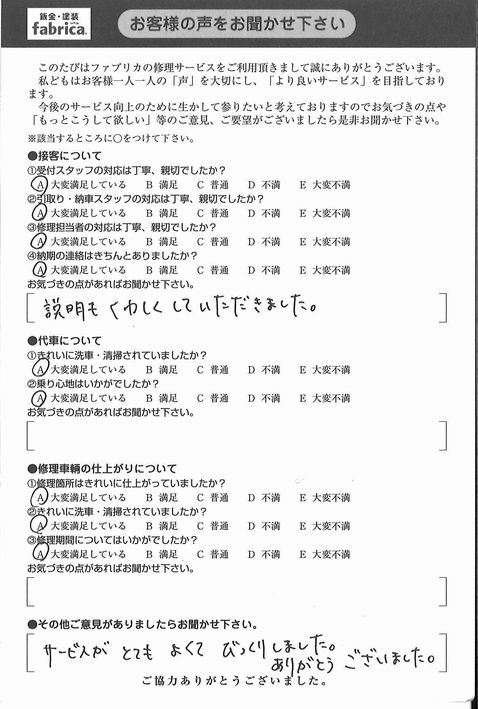 鈑金・塗装
fabrica.
お客様の声をお聞かせ下さい
このたびはファブリカの修理サービスをご利用頂きまして誠にありがとうございます。
私どもはお客様一人一人の「声」を大切にし、「より良いサービス」を目指しており
ます。
今後のサービス向上のために生かして参りたいと考えておりますのでお気づきの点や
「もっとこうして欲しい」等のご意見、ご要望がございましたら是非お聞かせ下さい。
※該当するところに〇をつけて下さい。
●接客について
①受付スタッフの対応は丁寧、親切でしたか？
A 大変満足している B 満足 C 普通 D 不満 E 大変不満
②引取り・納車スタッフの対応は丁寧、親切でしたか？
A 大変満足している B 満足 C 普通 D 不満 E 大変不満
③修理担当者の対応は丁寧、親切でしたか？
A 大変満足している B 満足 C 普通 D 不満 E 大変不満
④納期の連絡はきちんとありましたか？
A 大変満足している B 満足 C 普通 D 不満 E 大変不満
お気づきの点があればお聞かせ下さい。
説明もくわしくしていただきました。
●代車について
①きれいに洗車・清掃されていましたか？
A 大変満足している B 満足 C 普通 D 不満 E 大変不満
②乗り心地はいかがでしたか？
A 大変満足している B 満足 C 普通 D 不満 E 大変不満
お気づきの点があればお聞かせ下さい。
●修理車輌の仕上がりについて
①修理箇所はきれいに仕上がっていましたか？
A 大変満足している B 満足 C 普通 D 不満 E 大変不満
②きれいに洗車・清掃されていましたか？
A 大変満足している B 満足 C 普通 D 不満 E 大変不満
③修理期間についてはいかがでしたか？
A 大変満足している B 満足 C 普通 D 不満 E 大変不満
お気づきの点があればお聞かせ下さい。
●その他ご意見がありましたらお聞かせ下さい。
サービスが とても よくて びっくりしました。
ありがとう ございました。
ご協力ありがとうございました。